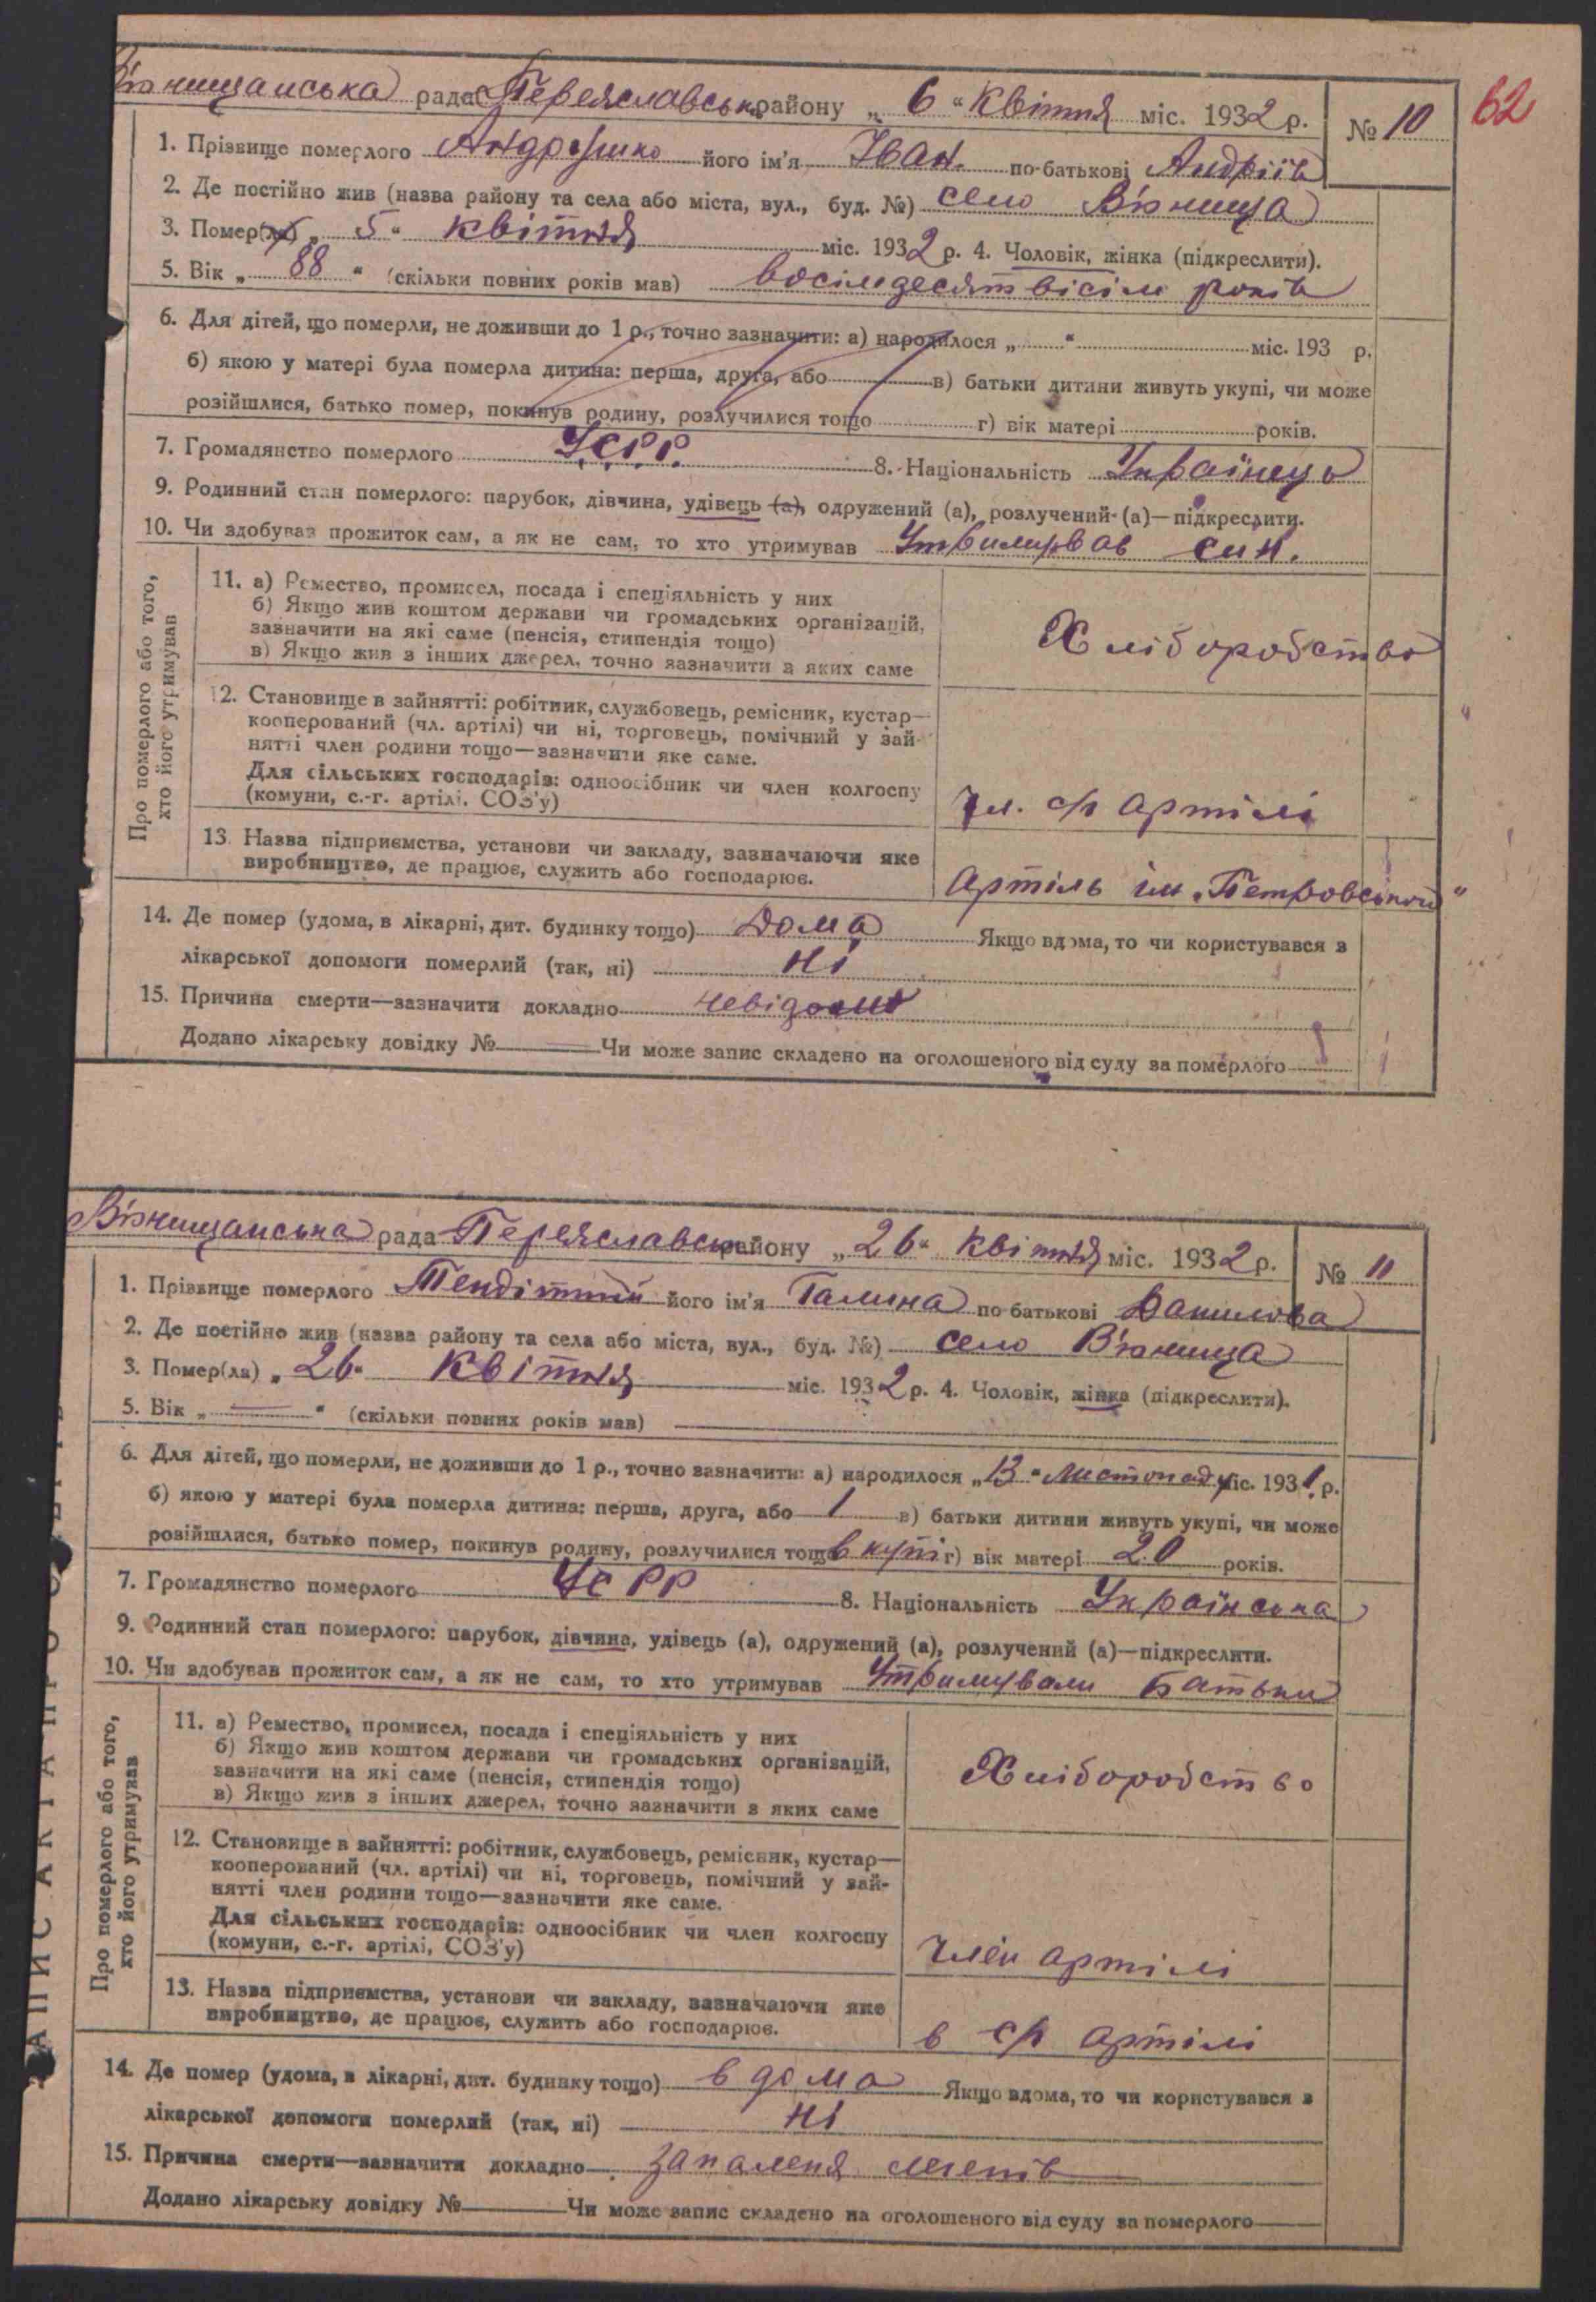 В'юнищанська рада Переяславськ району „ 6 “ Квітня міс. 1932 р. № 10
62
1. Прізвище померлого його ім'я Іван. по-батькові Андріїв
2. Де постійно жив (назва району та села або міста, вул., буд. №) село В'юнища
3. Помер(ла) „ 5 “ Квітня міс. 1932 р. 4. Чоловік, жінка (підкреслити).
5. Вік „ 88 “ (скільки повних років мав) восімдесят вісім років
6. Для дітей, що померли, не доживши до 1 р., точно зазначити: а) народилося „ “ міс. 193 р.
б) якою у матері була померла дитина: перша, друга, або в) батьки дитини живуть укупі, чи може
розійшлися, батько помер, покинув родину, розлучилися тощо г) вік матері років.
7. Громадянство померлого У.С.Р.Р. 8. Національність Українець
9. Родинний стан померлого: парубок, дівчина, удівець (а), одружений (а), розлучений (а)—підкреслити.
10. Чи здобував прожиток сам, а як не сам, то хто утримував Утримував син.
Про померлого або того,
хто його утримував
11. а) Ремество, промисел, посада і спеціяльність у них
б) Якщо жив коштом держави чи громадських організацій,
зазначити на які саме (пенсія, стипендія тощо)
в) Якщо жив з інших джерел, точно зазначити з яких саме
Хліборобство
12. Становище в зайнятті: робітник, службовець, ремісник, кустар—
кооперований (чл. артілі) чи ні, торговець, помічний у зай-
нятті член родини тощо—зазначити яке саме.
Для сільських господарів: одноосібник чи член колгоспу
(комуни, с.-г. артілі, СОЗ'у)
чл. с/г артілі
13. Назва підприємства, установи чи закладу, зазначаючи яке
виробництво, де працює, служить або господарює.
Артіль ім. „Петровського“
14. Де помер (удома, в лікарні, дит. будинку тощо) Дома Якщо вдома, то чи користувався з
лікарської допомоги померлий (так, ні) Ні
15. Причина смерти—зазначити докладно невідома
Додано лікарську довідку № — Чи може запис складено на оголошеного від суду за померлого
В'юнищанська рада Переяславськ району „ 26 “ Квітня міс. 1932 р. № 11
1. Прізвище померлого Тендітний його ім'я Галина по батькові Данилова
2. Де постійно жив (назва району та села або міста, вул., буд. №) село В'юнища
3. Помер(ла) „ 26 “ Квітня міс. 1932 р. 4. Чоловік, жінка (підкреслити).
5. Вік „ — “ (скільки повних років мав)
6. Для дітей, що померли, не доживши до 1 р., точно зазначити: а) народилося „ 13 “ Листопаду міс. 1931 р.
б) якою у матері була померла дитина: перша, друга, або 1 в) батьки дитини живуть укупі, чи може
розійшлися, батько помер, покинув родину, розлучилися тощо в купі г) вік матері 20 років.
7. Громадянство померлого УСРР 8. Національність Українська
9. Родинний стан померлого: парубок, дівчина, удівець (а), одружений (а), розлучений (а)—підкреслити.
10. Чи здобував прожиток сам, а як не сам, то хто утримував Утримували Батьки
Про померлого або того,
хто його утримував
11. а) Ремество, промисел, посада і спеціяльність у них
б) Якщо жив коштом держави чи громадських організацій,
зазначити на які саме (пенсія, стипендія тощо)
в) Якщо жив з інших джерел, точно зазначити з яких саме
Хліборобство
12. Становище в зайнятті: робітник, службовець, ремісник, кустар—
кооперований (чл. артілі) чи ні, торговець, помічний у зай-
нятті член родини тощо—зазначити яке саме.
Для сільських господарів: одноосібник чи член колгоспу
(комуни, с.-г. артілі, СОЗ'у)
член артілі
13. Назва підприємства, установи чи закладу, зазначаючи яке
виробництво, де працює, служить або господарює.
в с/г артілі
14. Де помер (удома, в лікарні, дит. будинку тощо) в дома Якщо вдома, то чи користувався з
лікарської допомоги померлий (так, ні) Ні
15. Причина смерти—зазначити докладно запаленя легенів
Додано лікарську довідку № — Чи може запис складено на оголошеного від суду за померлого